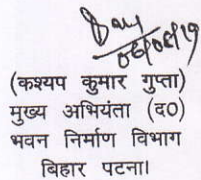 06/08/19
(कश्यप कुमार गुप्ता)
मुख्य अभियंता (द0)
भवन निर्माण विभाग
बिहार पटना।